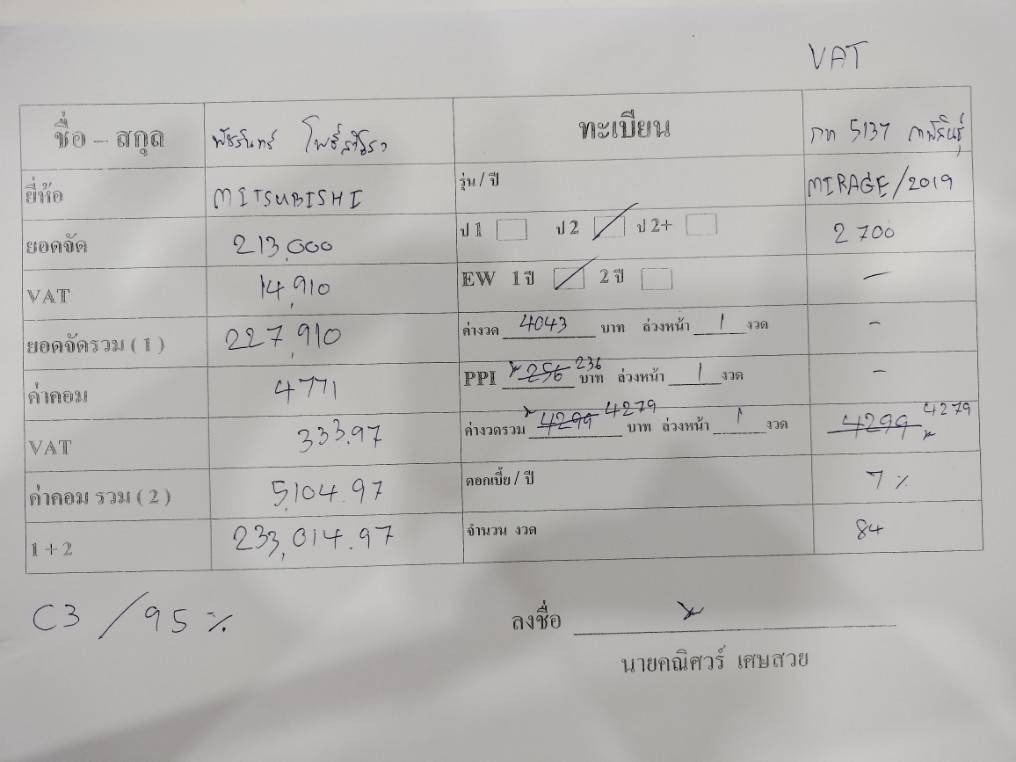 VAT
ชื่อ – สกุล พัชรินทร์ ทะเบียน กท 5137 กาฬสินธุ์
ยี่ห้อ MITSUBISHI รุ่น / ปี MIRAGE/2019
ยอดจัด 213,000 ป 1 ป 2 ป 2+ 2700
VAT 14,910 EW 1 ปี 2 ปี –
ยอดจัดรวม ( 1 ) 227,910 ค่างวด 4043 บาท ล่วงหน้า 1 งวด –
ค่าคอม 4771 PPI 256 236 บาท ล่วงหน้า 1 งวด –
VAT 333.97 ค่างวดรวม 4299 4279 บาท ล่วงหน้า 1 งวด 4299 4279
ค่าคอม รวม ( 2 ) 5,104.97 ดอกเบี้ย / ปี 7 %
1 + 2 233,014.97 จำนวน งวด 84
C3 / 95 %
ลงชื่อ
นายคณิศวร์ เศษสวย